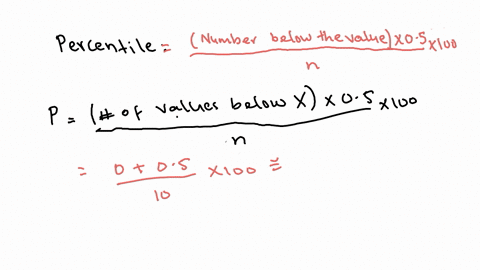 Percentile = (Number below the value) × 0.5 × 100
n
P = (# of values below X) × 0.5 × 100
n
= 0 + 0.5 × 100 ≅
10